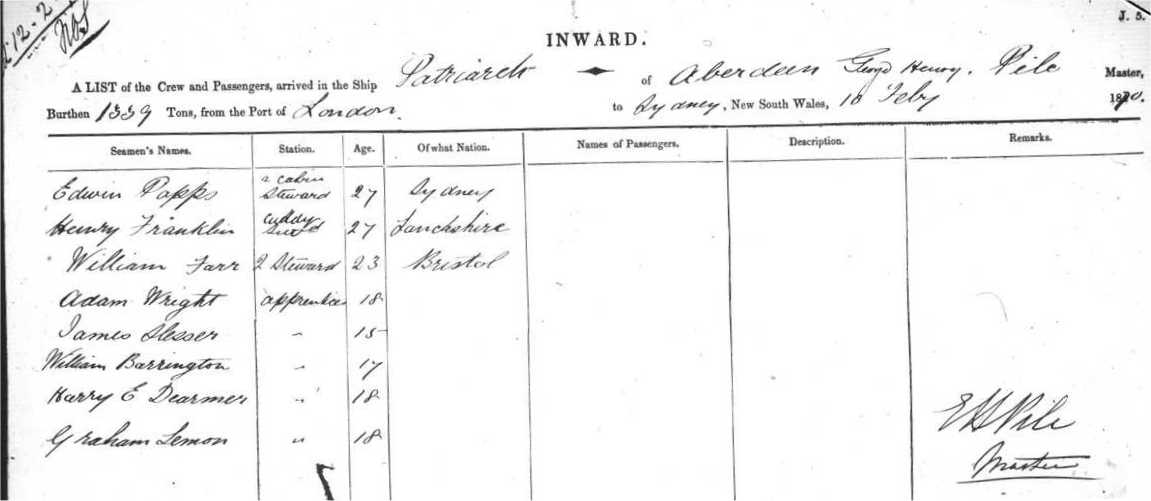 J. 5.
INWARD.
A LIST of the Crew and Passengers, arrived in the Ship Patriarch of Aberdeen Henry Pile Master,
Burthen 1339 Tons, from the Port of London. to Sydney, New South Wales, 10 Feby 1870.
Seamen's Names. Station. Age. Of what Nation. Names of Passengers. Description. Remarks.
Edwin Papps 2 cabin Steward 27 Sydney
Henry Franklin cuddy 27 Lanchshire
William Farr 2 Steward 23 Bristol
Adam Wright apprentice 18
James Slesser " 15
William Barrington " 17
Harry E Dearmer " 18
Graham Lemon " 18
Pile
Master